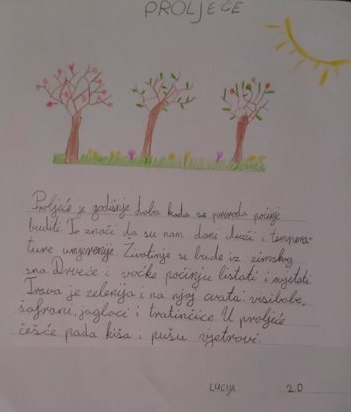 PROLJEĆE
Proljeće je godišnje doba kada se priroda počinje
buditi. To znači da su nam dani duži i tempera-
ture umjerenije. Životinje se bude iz zimskog
sna. Drveće i voćke počinju listati i cvjetati.
Trava je zelenija i na njoj cvatu visibabe,
šafrani, jaglaci i tratinčice. U proljeće
češće pada kiša i pušu vjetrovi.
LUCIJA 2.D